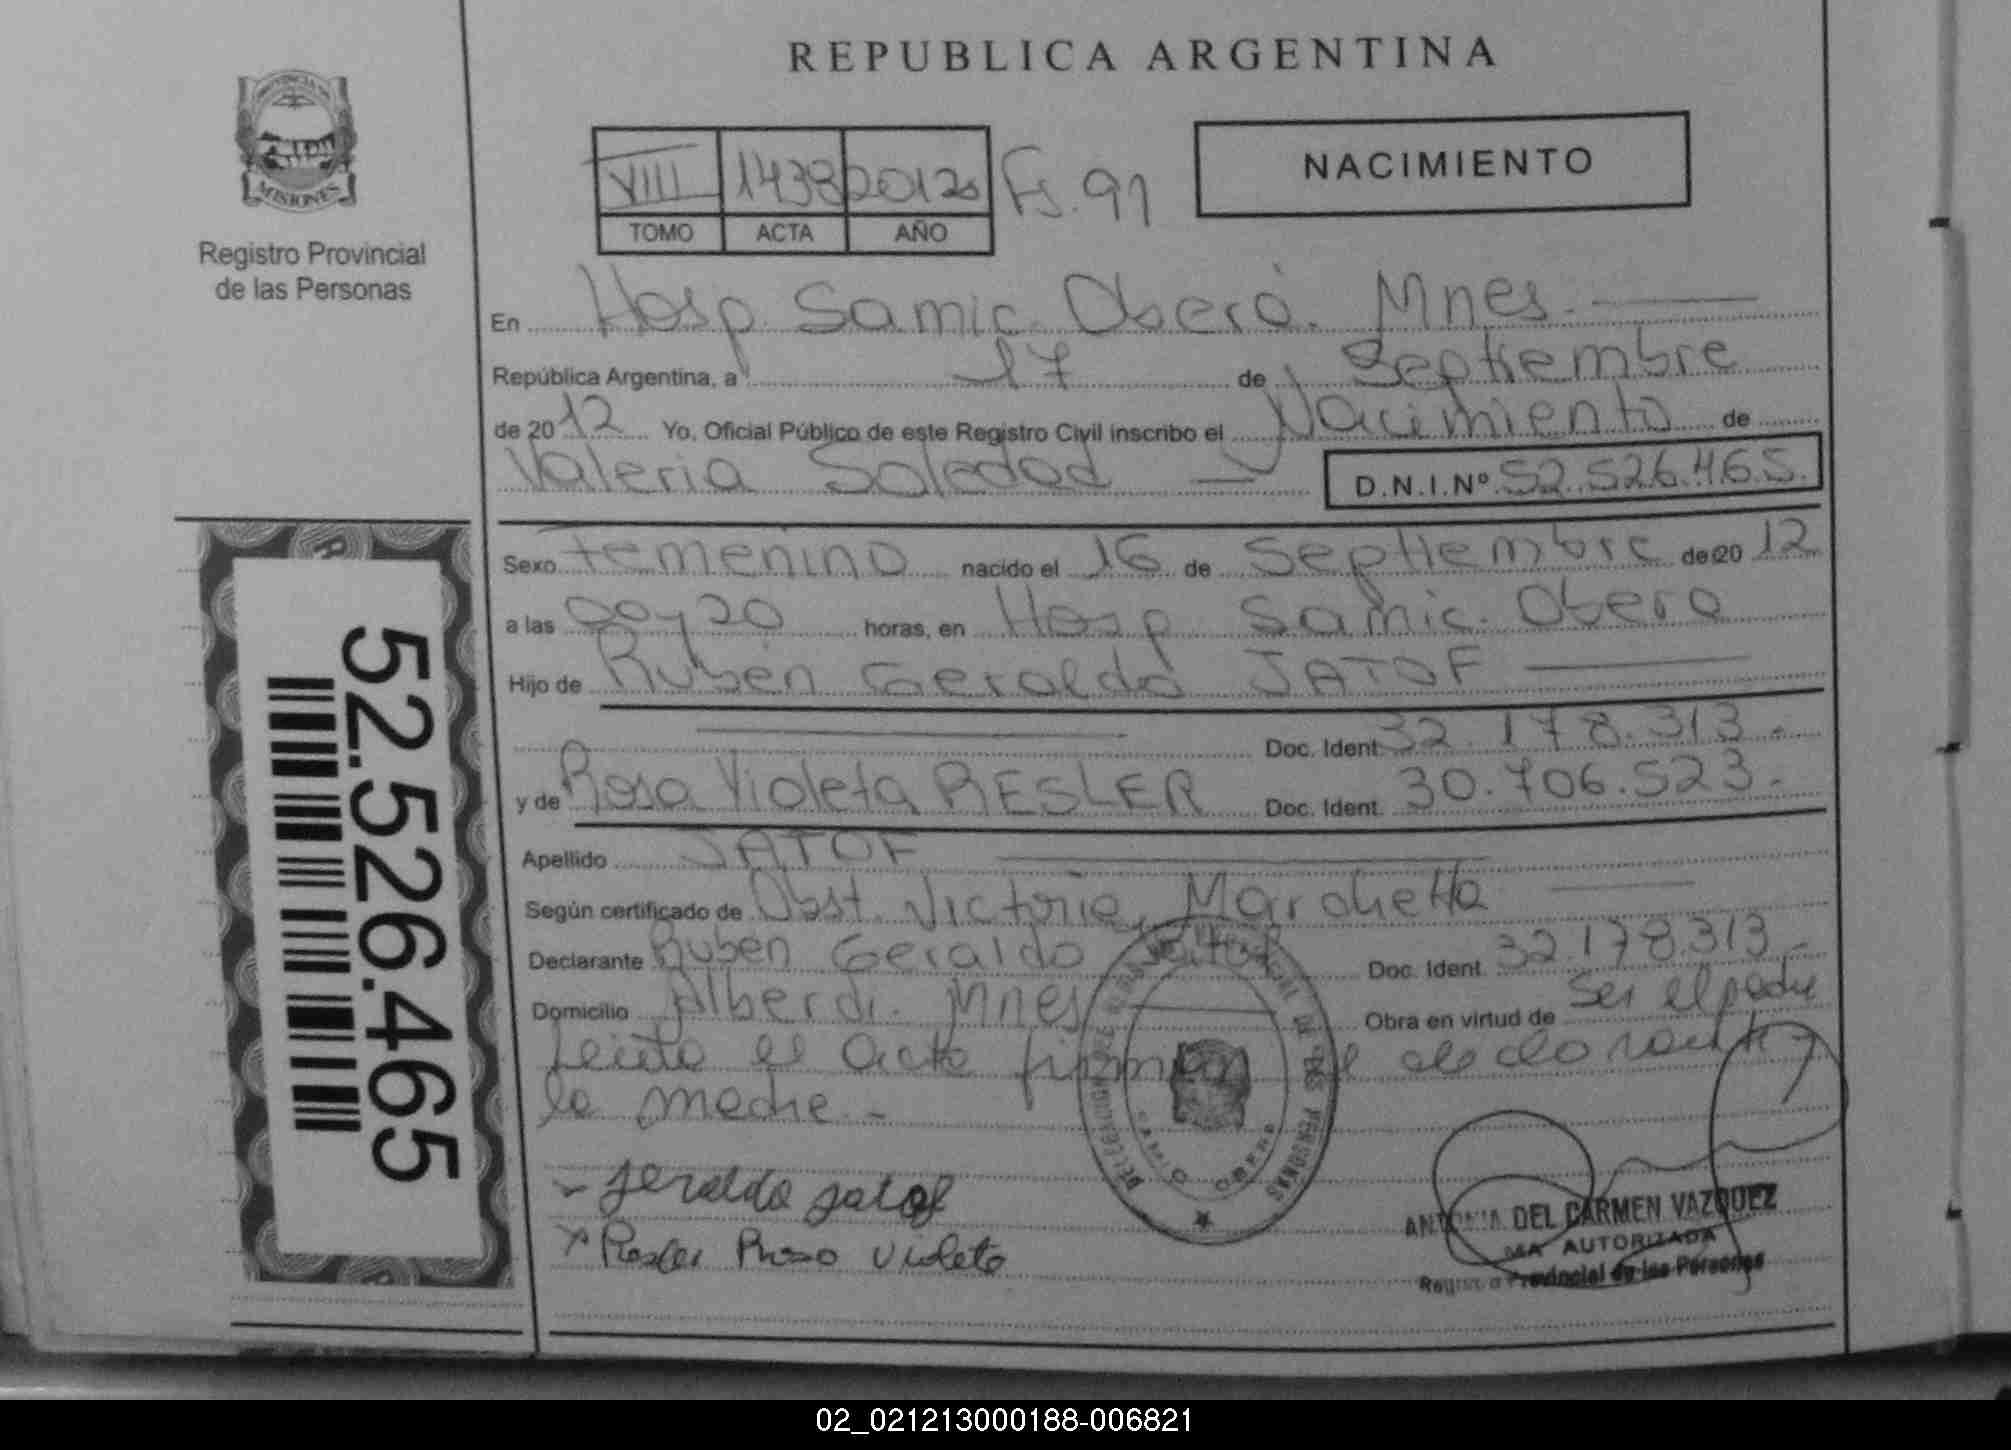 REPUBLICA ARGENTINA
PROVINCIA DE
MISIONES
Registro Provincial
de las Personas
VIII 1438 2012 Fs. 91
TOMO ACTA AÑO
NACIMIENTO
En Hosp. Samic. Oberá. Mnes.
República Argentina, a 17 de Septiembre
de 2012 Yo, Oficial Público de este Registro Civil inscribo el Nacimiento de
Valeria Soledad D.N.I.Nº 52.526.465.
Sexo Femenino nacido el 16 de Septiembre de 2012
a las 00y20 horas, en Hosp Samic. Obera
Hijo de Ruben Geraldo JATOF
Doc. Ident. 32.178.313.-
y de Rosa Violeta RESLER Doc. Ident. 30.706.523.-
Apellido JATOF
Según certificado de Obst. Victoria Marchetta
Declarante Ruben Geraldo Jatof Doc. Ident. 32.178.313.-
Domicilio Alberdi. Mnes Obra en virtud de Ser el padre
el acta firman el declarante
la madre.-
Geraldo Jatof
Resler Rosa Violeta
DEL CARMEN VAZQUEZ
AUTORIZADA
Provincial de las Personas
52.526.465
02_021213000188-006821